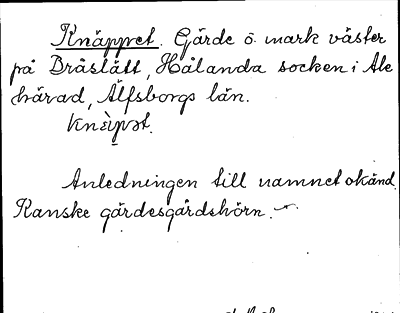 Knäppet. Gärde ö mark väster
på Bråslätt, Hålanda socken i Ale
härad, Älfsborgs län.
Anledningen till namnet okänd.
Kanske gärdesgårdshörn.